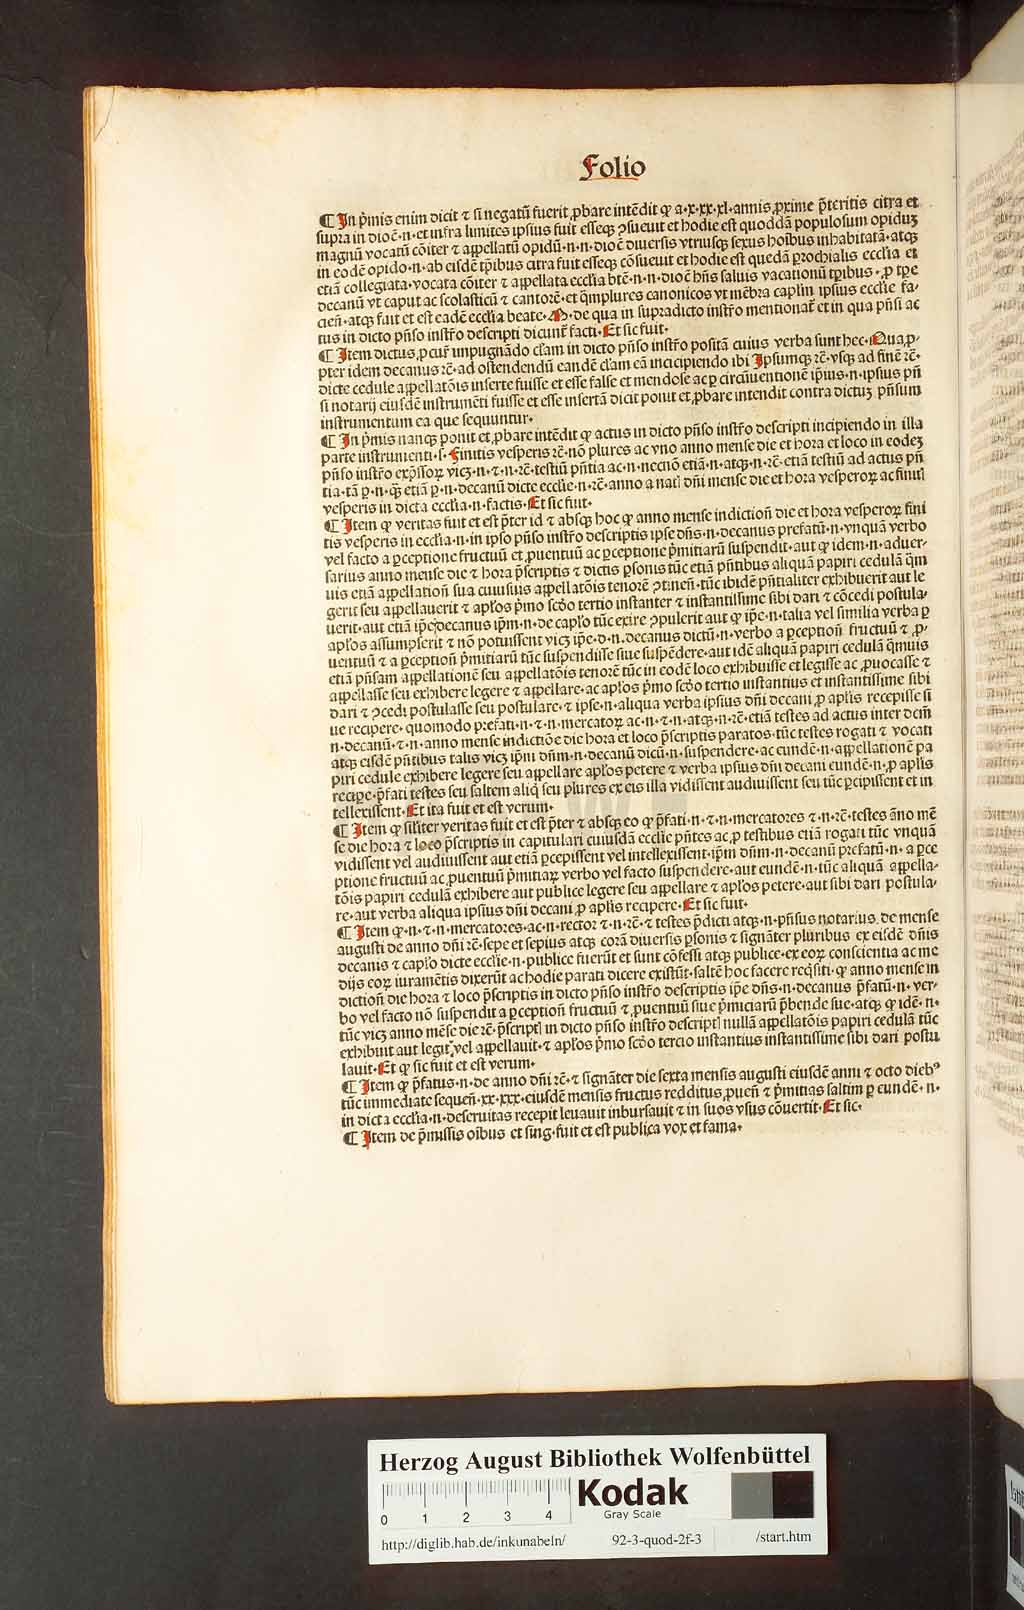 Folio
¶ In p̄mis enim dicit ⁊ si negatū fuerit ꝓbare intēdit ꝙ a·x·xx·xl·annis ꝓxime p̄teritis citra et
supra in dioc̄·n·et infra limites ipsius fuit esseqꝫ ↄsueuit et hodie est quoddā populosum opiduꝫ
magnū vocatū cōiter ⁊ appellatū opidū·n·n·dioc̄ diuersis vtriusqꝫ sexus hoībus inhabitatā·atqꝫ
in eodē opido·n·ab eisdē tp̄ibus citra fuit esseqꝫ cōsueuit et hodie est quedā ꝑrochialis eccl̄ia et
etiā collegiata·vocata cōiter ⁊ appellata eccl̄ia btē·n·n·dioc̄ hn̄s saluis vacationū tp̄ibus·ꝓ tp̄e
decanū vt caput ac scolasticū ⁊ cantorē·et q̄mplures canonicos vt mēbra capl̄m ipsius eccl̄ie fa-
cien̄·atqꝫ fuit et est eadē eccl̄ia beate·M·de qua in supradicto instr̄o mentionat̄ et in qua pn̄si ac
tus in dicto pn̄so instr̄o descripti dicunt̄ facti·Et sic fuit·
¶ Item dictus ꝓcur̄ impugnādo cl̄am in dicto pn̄so instr̄o positā cuius verba sunt hec·Qua ꝓ-
pter idem decanus rē·ad ostendendū eandē cl̄am eā incipiendo ibi Ipsumqꝫ rē·vsqꝫ ad finē rē·
dicte cedule appellatōis inserte fuisse et esse false et mendose ac ꝑ circūuentionē ip̄ius·n·ipsius pn̄
si notarij eiusdē instrumēti fuisse et esse insertā dicit ponit et ꝓbare intendit contra dictuꝫ pn̄sum
instrumentum ea que sequuntur·
¶ In p̄mis nanqꝫ ponit et ꝓbare intēdit ꝙ actus in dicto pn̄so instr̄o descripti incipiendo in illa
parte instrumenti·s·Finitis vesperis rē·nō plures ac vno anno mense die et hora et loco in eodeꝫ
pn̄so instr̄o exp̄ssoꝝ vicꝫ·n·⁊·n·rē·testiū pn̄tia ac·n·necnō etiā·n·atqꝫ·n·rē·etiā testiū ad actus pn̄
tia·tā ꝑ·n·q̄ꝫ etiā ꝑ·n·decanū dicte eccl̄ie·n·rē·anno a natl̄ dn̄i mense die et hora vesperoꝝ ac finitl̄
vesperis in dicta eccl̄ia·n·factis·Et sic fuit·
¶ Item ꝙ veritas fuit et est p̄ter id ⁊ absqꝫ hoc ꝙ anno mense indiction̄ die et hora vesperoꝝ fini
tis vesperis in eccl̄ia·n·in ipso pn̄so instr̄o descriptis ipse dn̄s·n·decanus prefatū·n·vnquā verbo
vel facto a ꝑceptione fructuū et ꝓuentuū ac ꝑceptione p̄mitiarū suspendit·aut ꝙ idem·n·aduer-
sarius anno mense die ⁊ hora p̄scriptis ⁊ dictis ꝑsonis tūc etiā pn̄tibus aliquā papiri cedulā q̄m
uis etiā appellation̄ sua cuiusuis appellatōis tenorē ↄtinen̄·tūc ibidē pn̄tialiter exhibuerit aut le
gerit seu appellauerit ⁊ apl̄os p̄mo scd̄o tertio instanter ⁊ instantissime sibi dari ⁊ cōcedi postula-
uerit·aut etiā ip̄e decanus ip̄m·n·de capl̄o tūc exire ↄpulerit aut ꝙ ip̄e·n·talia vel similia verba ꝑ
apl̄os assumpserit ⁊ nō potuissent vicꝫ ip̄e·d·n·decanus dictū·n·verbo a ꝑception̄ fructuū ⁊ ꝓ-
uentuū ⁊ a ꝑception̄ p̄mitiarū tūc suspendisse siue suspēdere·aut idē aliquā papiri cedulā q̄muis
etiā pn̄sam appellationē seu appellatōis tenorē tūc in eodē loco exhibuisse et legisse ac ꝓuocasse ⁊
appellasse seu exhibere legere ⁊ appellare·ac apl̄os p̄mo scd̄o tertio instantius et instantissime sibi
dari ⁊ ↄcedi postulasse seu postulare·⁊ ipse·n·aliqua verba ipsius dn̄i decani ꝓ apl̄is recepisse si
ue recipere·quomodo prefati·n·⁊·n·mercatoꝝ ac·n·⁊·n·atqꝫ·n·rē·etiā testes ad actus inter dcm̄
n·decanū·⁊·n·anno mense indictiōe die hora et loco p̄scriptis paratos·tūc testes rogati ⁊ vocati
atqꝫ eisdē pn̄tibus talis vicꝫ ip̄m dn̄m·n·decanū dictū·n·suspendere·ac eundē·n·appellationē pa
piri cedule exhibere legere seu appellare apl̄os petere ⁊ verba ipsius dn̄i decani eundē·n·ꝓ apl̄is
recip̄e·p̄fati testes seu saltem aliq̄ seu plures ex eis illa vidissent audiuissent seu tūc ꝑcipissent et in
tellexissent·Et ita fuit et est verum·
¶ Item ꝙ sil̄iter veritas fuit et est p̄ter ⁊ absqꝫ eo ꝙ p̄fati·n·⁊·n·mercatores ⁊·n·rē·testes āno mē
se die hora ⁊ loco p̄scriptis in capitulari cuiusdā eccl̄ie pn̄tes ac ꝓ testibus etiā rogati tūc vnquā
vidissent vel audiuissent aut etiā ꝑcepissent vel intellexissent·ip̄m dn̄m·n·decanū prefatū·n·a ꝑce
ptione fructuū ac ꝓuentuū p̄mitiaꝝ verbo vel facto suspendere·aut eundē·n·tūc aliquā appella-
tōis papiri cedulā exhibere aut publice legere seu appellare ⁊ apl̄os petere·aut sibi dari postula-
re·aut verba aliqua ipsius dn̄i decani ꝓ apl̄is recipere·Et sic fuit·
¶ Item ꝙ·n·⁊·n·mercatores·ac·n·rector ⁊·n·rē·⁊ testes p̄dicti atqꝫ·n·pn̄sus notarius de mense
augusti de anno dn̄i rē·sepe et sepius atqꝫ corā diuersis ꝑsonis ⁊ signāter pluribus ex eisdē dn̄is
decanis ⁊ capl̄o dicte eccl̄ie·n·publice fuerūt et sunt cōfessi atqꝫ publice·ex eoꝝ conscientia ac me
dijs eoꝝ iuramētis dixerūt ac hodie parati dicere existūt·saltē hoc facere req̄siti·ꝙ anno mense in
diction̄ die hora ⁊ loco p̄scriptis in dicto pn̄so instr̄o descriptis ip̄e dn̄s·n·decanus p̄fatū·n·ver-
bo vel facto nō suspendit a ꝑception̄ fructuū ⁊ ꝓuentuū siue p̄miciarū p̄bende sue·atqꝫ ꝙ idē·n·
tūc vicꝫ anno mēse die rē·p̄scriptl̄ in dicto pn̄so instr̄o descriptl̄ nullā appellatōis papiri cedulā tūc
exhibuit aut legit vel appellauit·⁊ apl̄os p̄mo scd̄o tercio instantius instantissime sibi dari postu
lauit·Et ꝙ sic fuit et est verum·
¶ Item ꝙ p̄fatus·n·de anno dn̄i rē·⁊ signāter die sexta mensis augusti eiusdē anni ⁊ octo diebꝰ
tūc immediate sequen̄·xx·xxx·eiusdē mensis fructus redditus ꝓuen̄ ⁊ p̄mitias saltim ꝑ eundē·n·
in dicta eccl̄ia·n·deseruitas recepit leuauit inbursauit ⁊ in suos vsus cōuertit·Et sic·
¶ Item de p̄missis oībus et sing·fuit et est publica vox et fama·
Herzog August Bibliothek Wolfenbüttel
0 1 2 3 4
Kodak
Gray Scale
http://diglib.hab.de/inkunabeln/ 92-3-quod-2f-3 /start.htm